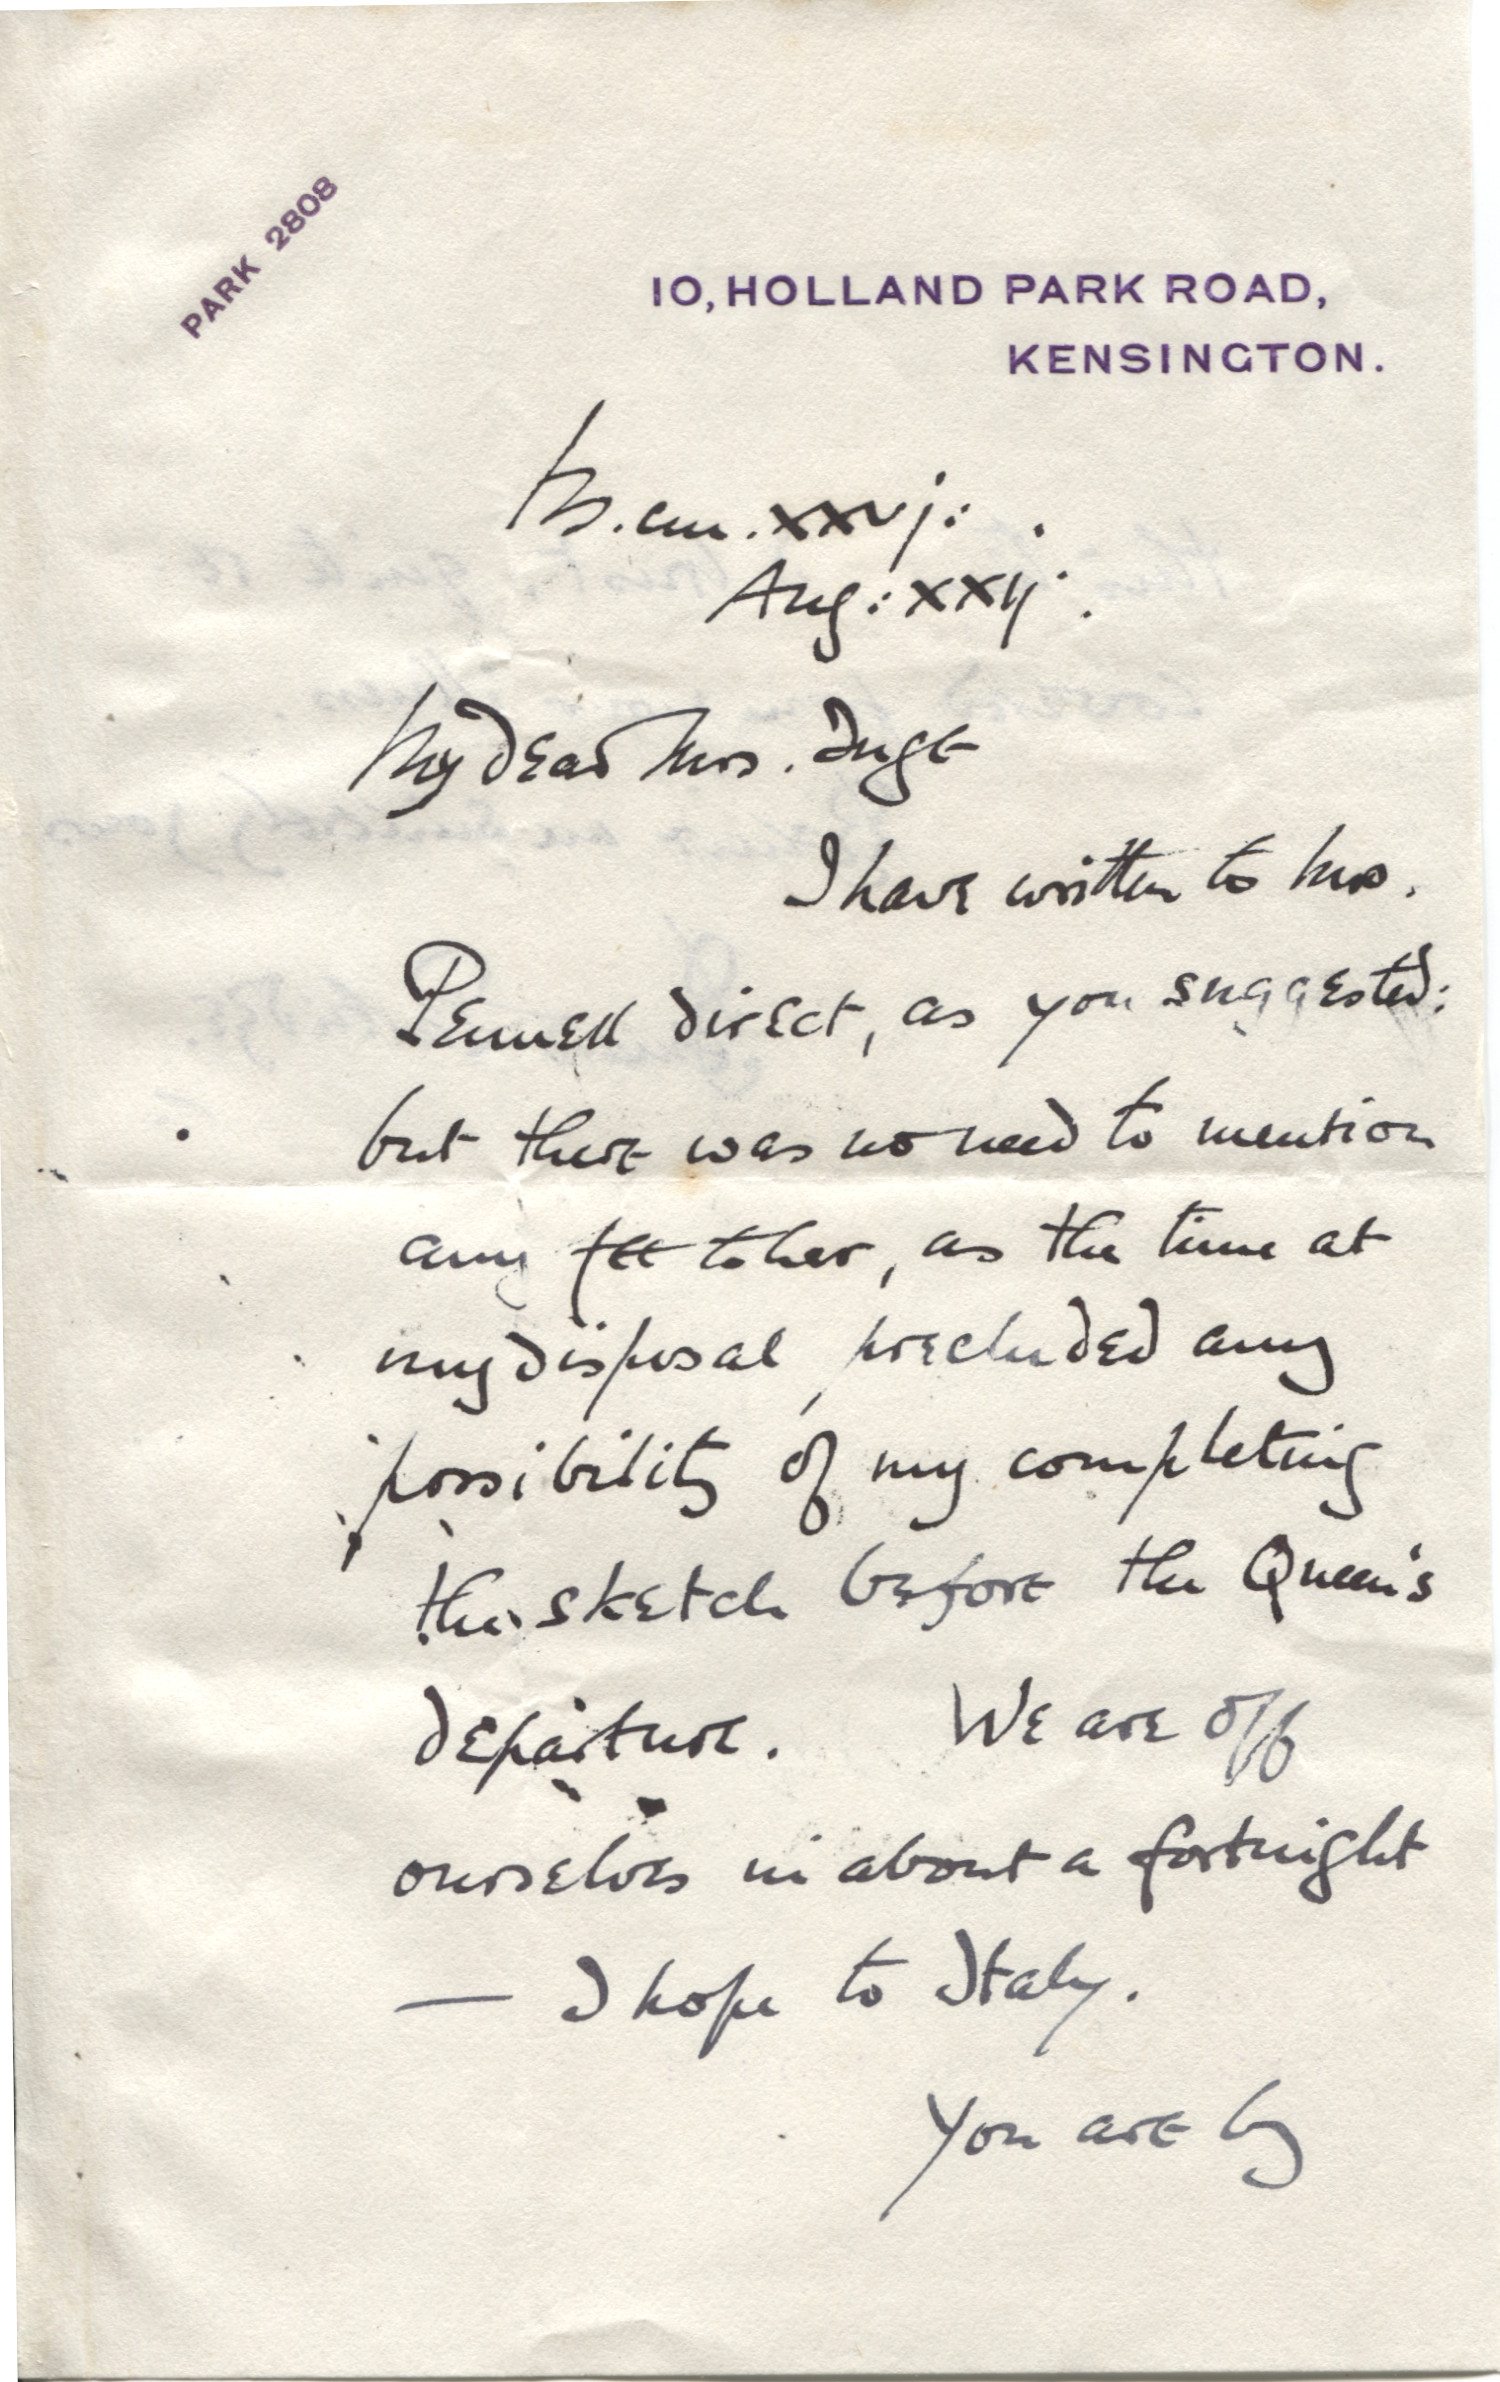 PARK 2808
10, HOLLAND PARK ROAD,
KENSINGTON.
M.cm.xxvj:
Aug: xxij.
My dear Mrs. Inge
I have written to Mrs.
Pennell direct, as you suggested:
but there was no need to mention
any fee to her, as the time at
my disposal precluded any
possibility of my completing
the sketch before the Queen's
departure. We are off
ourselves in about a fortnight
— I hope to Italy.
You are by